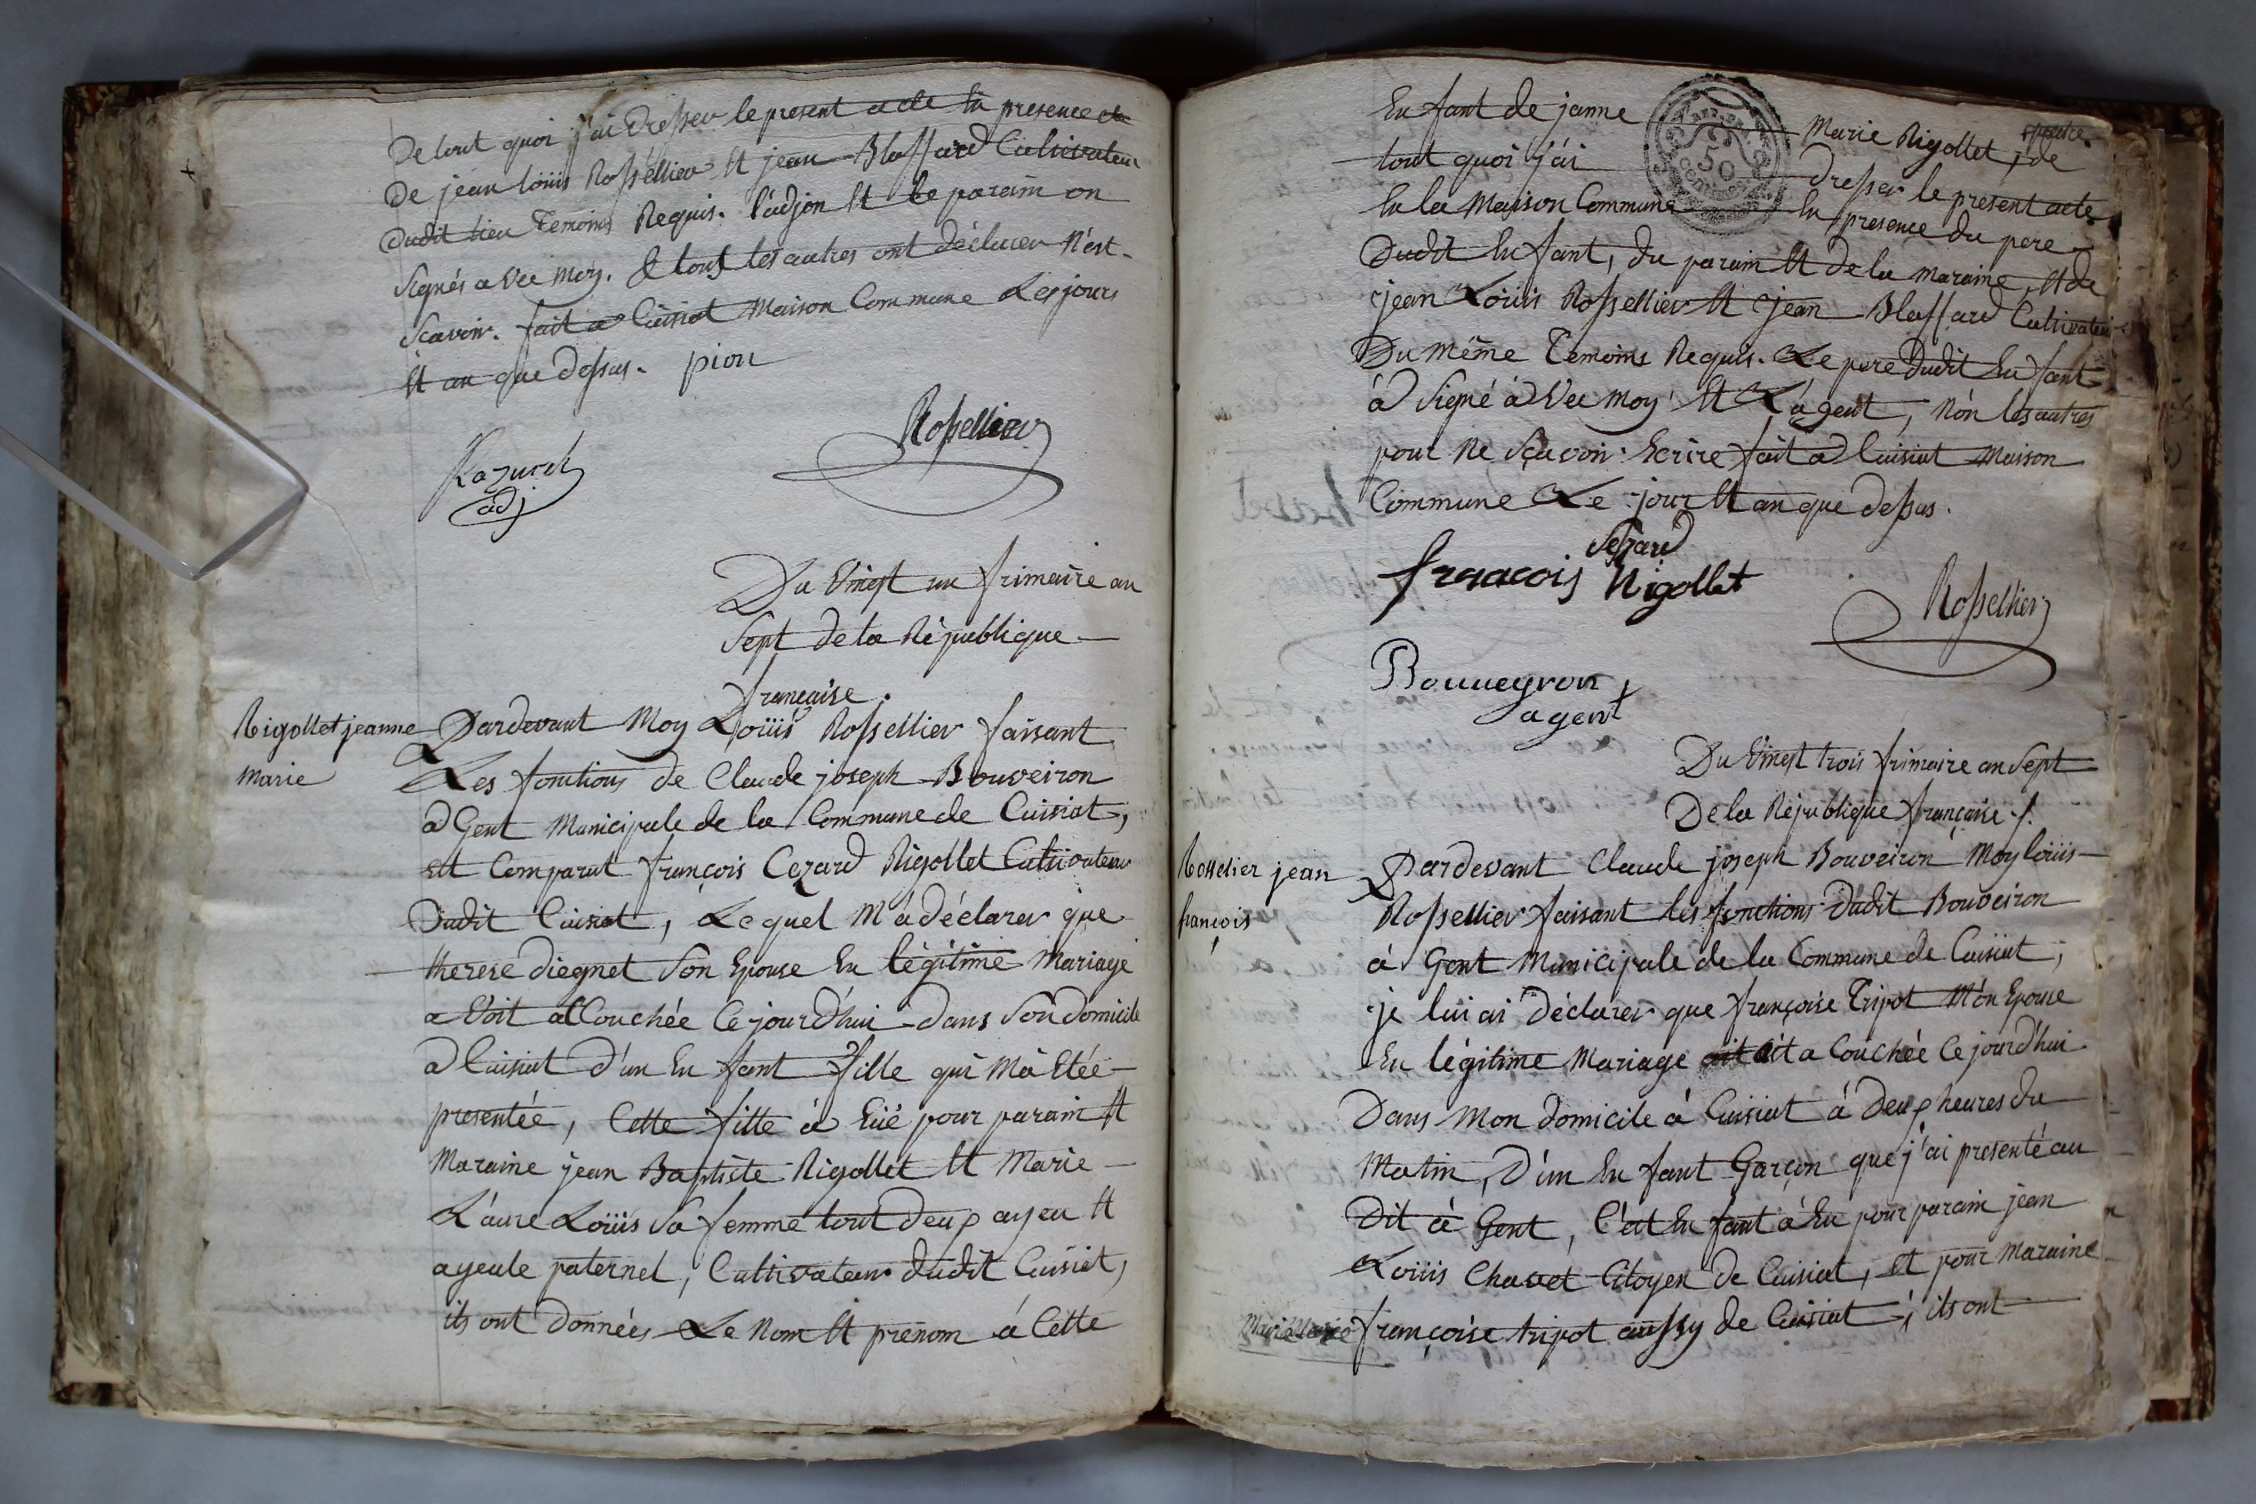 De tout quoi j'ai dresser le present acte En presence
De jean loüis Rossellier Et jean Blassard Cultivateur
Dudit lieu Temoins Requis. l'adjon Et le parain on
Signés avec moy. & tous les autres ont déclarer n'est
Scavoir. fait a Cuisiat Maison Commune Les jours
Et an que dessus. piou
Rossellier
Kazurel
adj
Du Vingt un frimaire an
Sept de la République
française.
Rigollet jeanne
Marie
Pardevant Moy Loüis Rossellier faisant
Les fonctions de Claude joseph Bouveiron
aGent Municipale de la Commune de Cuisiat,
est Comparut françois Cezard Rigollet Cultivateur
Dudit Cuisiat, Lequel M'a déclarer que
therese diegnet Son Epouse En légitime Mariage
a Voit accouchée Cejourd'hui dans Son domicile
a Cuisiat d'un Enfant fille qui M'a Etée
presentée, Cette fille à Eüe pour parain Et
Maraine jean Baptiste Rigollet Et Marie
L'aure Loüis Sa femme tout deup ayeu Et
ayeule paternel, Cultivateur dudit Cuisiat,
ils ont données Le Nom Et prénom à Cette
Enfant de janne Marie Rigollet, de
tout quoi j'ai dresser le present acte
En la Maison Commune En presence du pere
Dudit Enfant, du parain Et de la maraine, Et de
jean Loüis Rossellier Et jean Blassard Cultivateur
Du même Temoins Requis. Le pere dudit Enfant
à Signé àVec Moy Et L'agent, Nón les autres
pour Ne Sçavoir Ecrire fait a Cuisiat Maison
Commune Le jour Et an que dessus.
Sezard
fransacois Rigollet
Rossellier
Bouueyron
agent
50
Du Vingt trois frimaire an Sept
De la République française ./.
Rosselier jean
françois
Pardevant Claude joseph Bouveiron Moy loüis
Rossellier faisant les fonctions dudit Bouveiron
à Gent Municipale de la Commune de Cuisiat,
je lui ai déclarer que françoise Tripot Món Epouse
En légitime Mariage ait a Couchée Cejourd'hui
Dans Mon domicile à Cuisiat à deup heures du
Matin, D'un Enfant Garçon que j'ai presenté au
Dit à Gent, C'et Enfant à Eu pour parain jean
Loüis Chavet Citoyen de Cuisiat, et pour Maraine
françoise tripot aussy de Cuisiat, ils ont